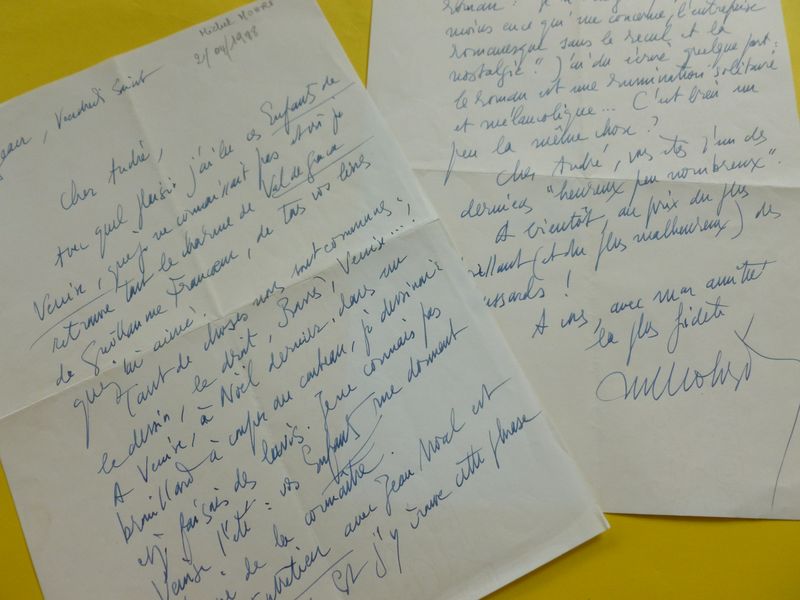 Michel MOHRT
2/04/1998
, Vendredi Saint
Cher André,
Avec quel plaisir j'ai lu ces Enfants de
Venise, que je ne connaissais pas et où je
retrouve tout le charme de Val de Grace
de Guillaume Francœur, de tous vos livres
que j'ai aimés.
Tant de choses nous sont communes :
le dessin, le droit, Venise...
A Venise, à Noël dernier, dans un
brouillard à couper au couteau, je dessinais
et faisais des lavis. Je ne connais pas
Venise l'été : vos Enfants me donnent
de la connaître.
entretien avec Jean Noël est
Et j'y trouve cette phrase
roman ?
moins en ce qui me concerne, l'entreprise
romanesque sans le recul et la
nostalgie." J'ai dû écrire quelque part :
le roman est une rumination solitaire
et mélancolique... C'est bien un
peu la même chose ?
Cher André, vous êtes l'un des
derniers "heureux peu nombreux".
A bientôt, au prix du plus
(et du plus malheureux) des
A vous, avec mon amitié
la plus fidèle